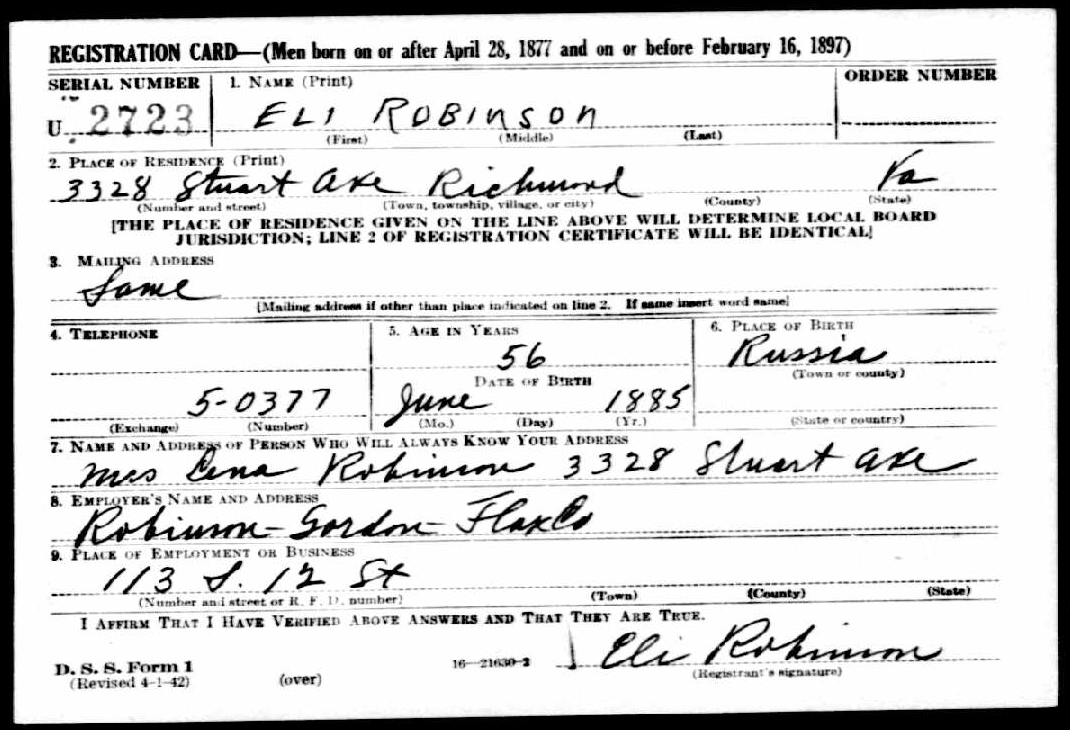 REGISTRATION CARD—(Men born on or after April 28, 1877 and on or before February 16, 1897)
SERIAL NUMBER 1. NAME (Print) ORDER NUMBER
U 2723 ELI ROBINSON
(First) (Middle) (Last)
2. PLACE OF RESIDENCE (Print)
3328 Stuart Ave Richmond Va
(Number and street) (Town, township, village, or city) (County) (State)
[THE PLACE OF RESIDENCE GIVEN ON THE LINE ABOVE WILL DETERMINE LOCAL BOARD
JURISDICTION; LINE 2 OF REGISTRATION CERTIFICATE WILL BE IDENTICAL]
3. MAILING ADDRESS
Same
[Mailing address if other than place indicated on line 2. If same insert word same]
4. TELEPHONE 5. AGE IN YEARS 6. PLACE OF BIRTH
56 Russia
DATE OF BIRTH (Town or county)
5-0377 June 1885
(Exchange) (Number) (Mo.) (Day) (Yr.) (State or country)
7. NAME AND ADDRESS OF PERSON WHO WILL ALWAYS KNOW YOUR ADDRESS
Mrs Lena Robinson 3328 Stuart Ave
8. EMPLOYER'S NAME AND ADDRESS
Robinson-Gordon-Flax Co
9. PLACE OF EMPLOYMENT OR BUSINESS
113 S. 12 St
(Number and street or R. F. D. number) (Town) (County) (State)
I AFFIRM THAT I HAVE VERIFIED ABOVE ANSWERS AND THAT THEY ARE TRUE.
Eli Robinson
D. S. S. Form 1 16—21630-2 (Registrant's signature)
(Revised 4-1-42) (over)